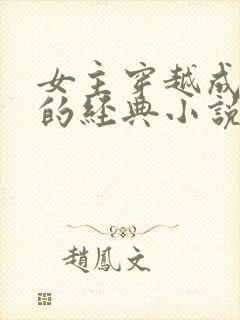 女主穿越成
的經典小說
趙鳳文